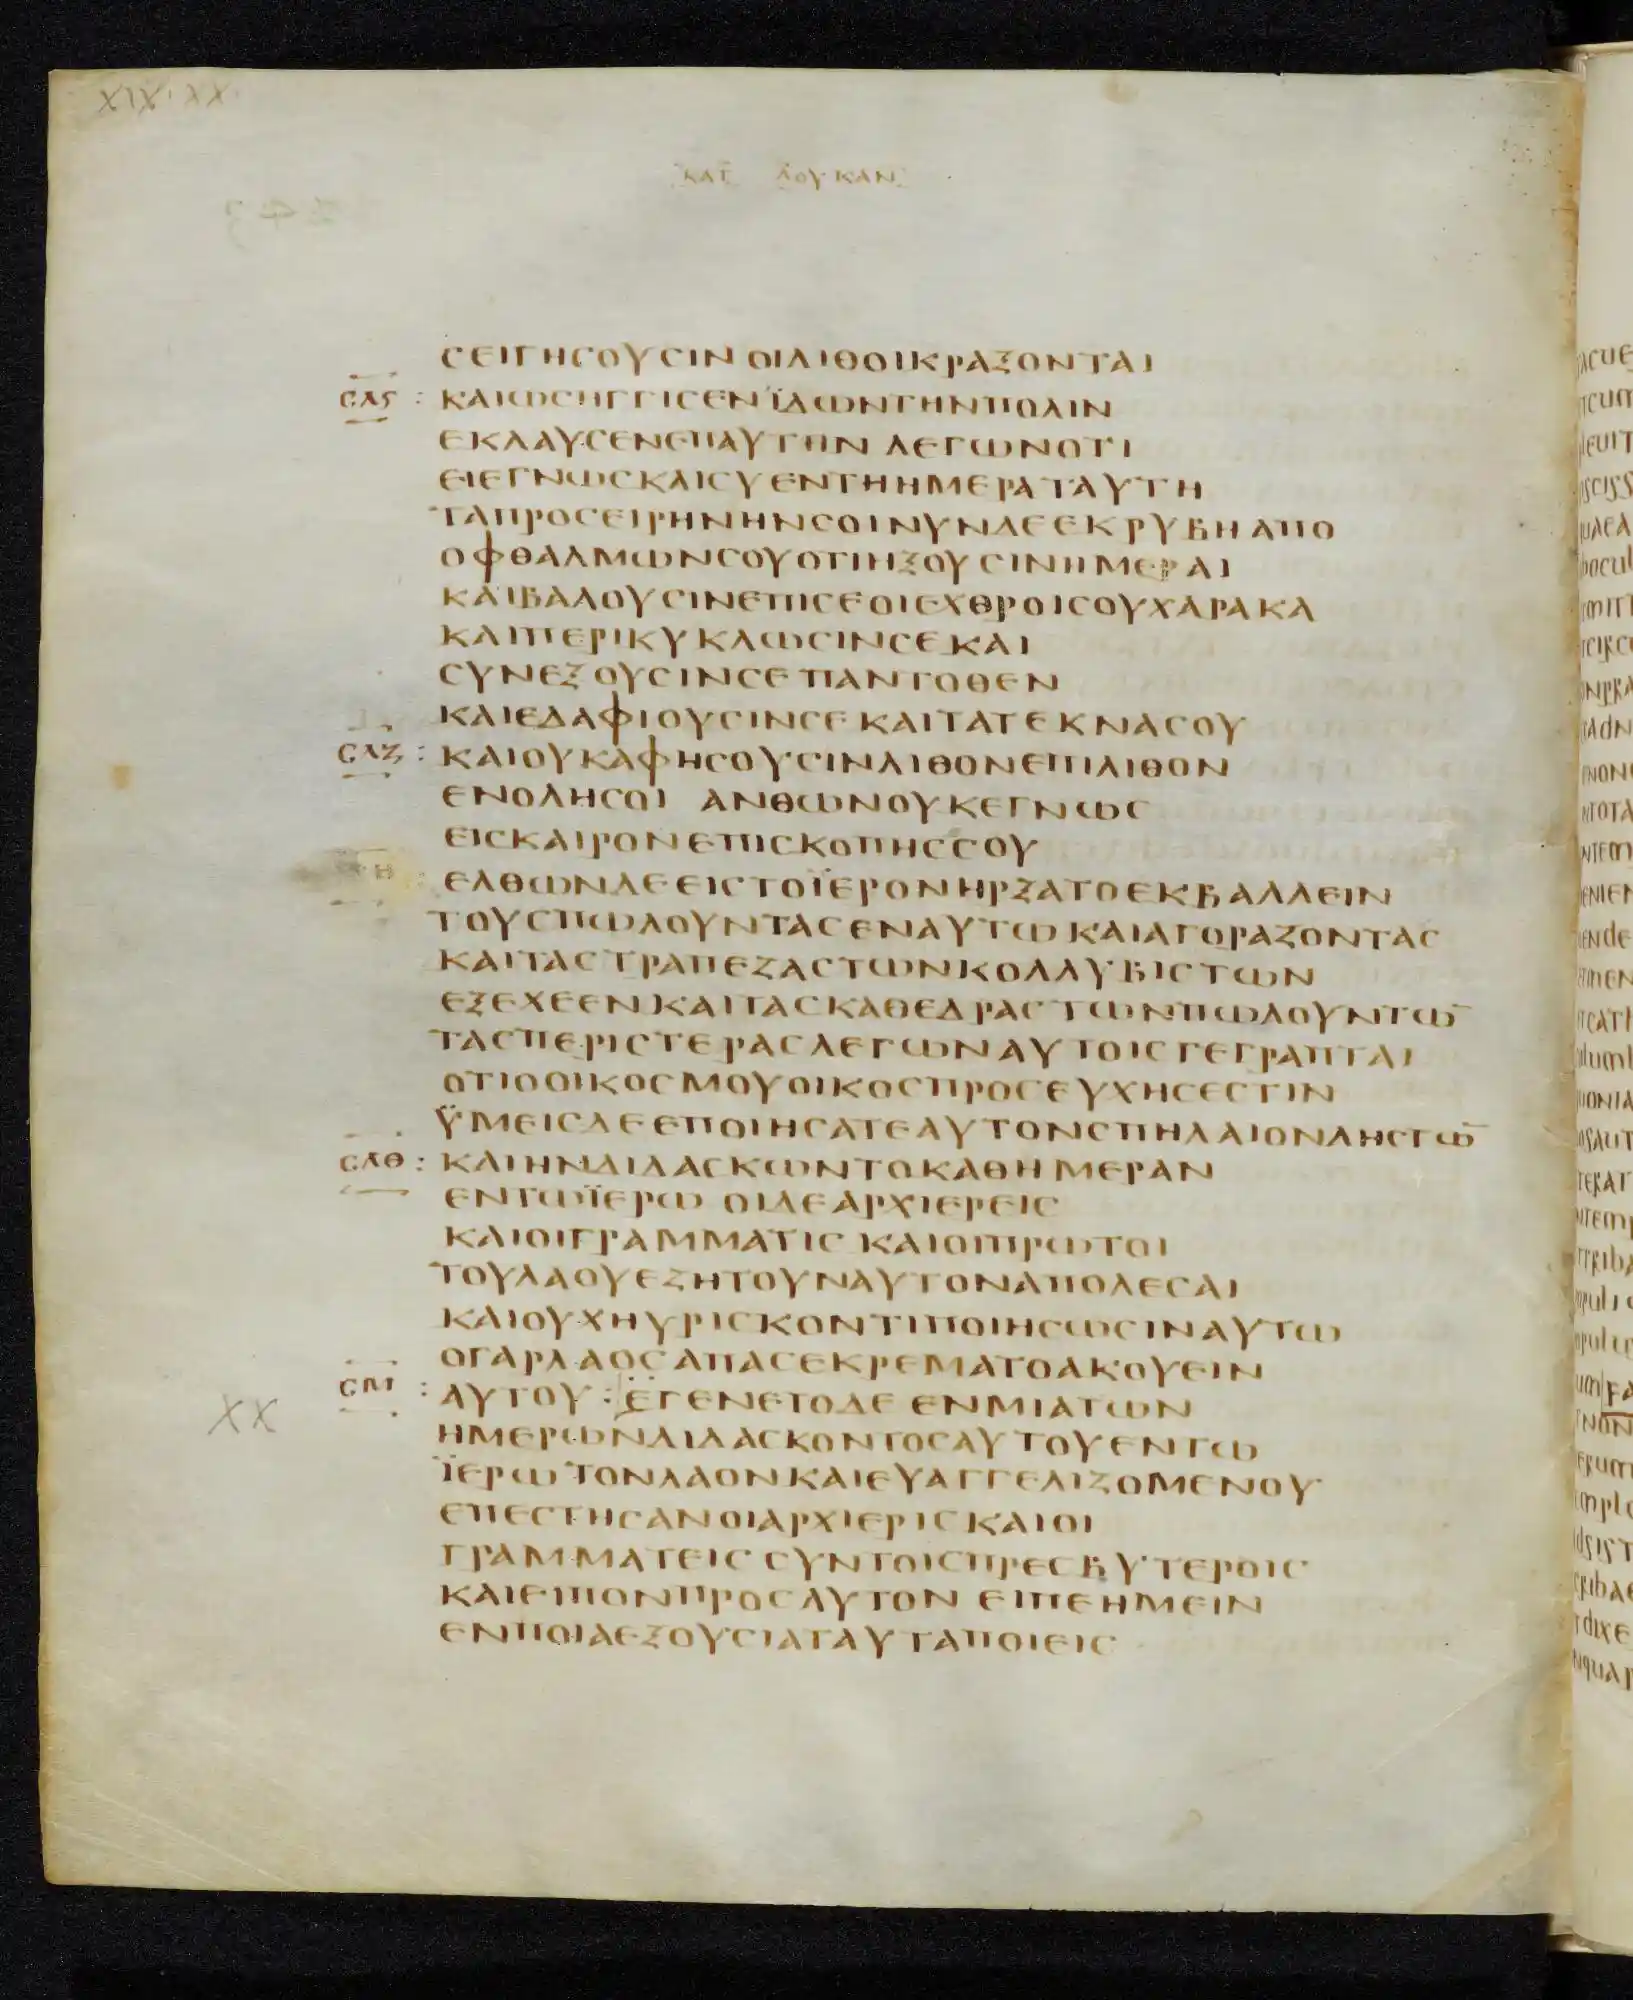 XIX·XX·
ΚΑΤ ΛΟΥΚΑΝ
ϹΕΙΓΗϹΟΥϹΙΝ ΟΙΛΙΘΟΙΚΡΑΞΟΝΤΑΙ
ϹΛϚ : ΚΑΙΩϹΗΓΓΙϹΕΝΪΔΩΝΤΗΝΠΟΛΙΝ
ΕΚΛΑΥϹΕΝΕΠΑΥΤΗΝ ΛΕΓΩΝΟΤΙ
ΕΙΕΓΝΩϹΚΑΙϹΥΕΝΤΗΗΜΕΡΑΤΑΥΤΗ
ΤΑΠΡΟϹΕΙΡΗΝΗΝϹΟΙΝΥΝΔΕΕΚΡΥΒΗΑΠΟ
ΟΦΘΑΛΜΩΝϹΟΥΟΤΙΗΞΟΥϹΙΝΗΜΕΡΑΙ
ΚΑΙΒΑΛΟΥϹΙΝΕΠΙϹΕΟΙΕΧΘΡΟΙϹΟΥΧΑΡΑΚΑ
ΚΑΙΠΕΡΙΚΥΚΛΩϹΙΝϹΕΚΑΙ
ϹΥΝΕΞΟΥϹΙΝϹΕΠΑΝΤΟΘΕΝ
ΚΑΙΕΔΑΦΙΟΥϹΙΝϹΕΚΑΙΤΑΤΕΚΝΑϹΟΥ
ϹΛΖ : ΚΑΙΟΥΚΑΦΗϹΟΥϹΙΝΛΙΘΟΝΕΠΙΛΙΘΟΝ
ΕΝΟΛΗϹΟΙ ΑΝΘΩΝΟΥΚΕΓΝΩϹ
ΕΙϹΚΑΙΡΟΝΕΠΙϹΚΟΠΗϹϹΟΥ
ΕΛΘΩΝΔΕΕΙϹΤΟΪΕΡΟΝΗΡΞΑΤΟΕΚΒΑΛΛΕΙΝ
ΤΟΥϹΠΩΛΟΥΝΤΑϹΕΝΑΥΤΩΚΑΙΑΓΟΡΑΖΟΝΤΑϹ
ΚΑΙΤΑϹΤΡΑΠΕΖΑϹΤΩΝΚΟΛΛΥΒΙϹΤΩΝ
ΕΞΕΧΕΕΝΚΑΙΤΑϹΚΑΘΕΔΡΑϹΤΩΝΠΩΛΟΥΝΤΩ̅
ΤΑϹΠΕΡΙϹΤΕΡΑϹΛΕΓΩΝΑΥΤΟΙϹΓΕΓΡΑΠΤΑΙ
ΟΤΙΟΟΙΚΟϹΜΟΥΟΙΚΟϹΠΡΟϹΕΥΧΗϹΕϹΤΙΝ
ΫΜΕΙϹΔΕΕΠΟΙΗϹΑΤΕΑΥΤΟΝϹΠΗΛΑΙΟΝΛΗϹΤΩ̅
ϹΛΘ : ΚΑΙΗΝΔΙΔΑϹΚΩΝΤΟΚΑΘΗΜΕΡΑΝ
ΕΝΤΩΪΕΡΩ ΟΙΔΕΑΡΧΙΕΡΕΙϹ
ΚΑΙΟΙΓΡΑΜΜΑΤΙϹ ΚΑΙΟΙΠΡΩΤΟΙ
ΤΟΥΛΑΟΥΕΖΗΤΟΥΝΑΥΤΟΝΑΠΟΛΕϹΑΙ
ΚΑΙΟΥΧΗΥΡΙϹΚΟΝΤΙΠΟΙΗϹΩϹΙΝΑΥΤΩ
ΟΓΑΡΛΑΟϹΑΠΑϹΕΚΡΕΜΑΤΟΑΚΟΥΕΙΝ
ϹΜ : ΑΥΤΟΥ : ΕΓΕΝΕΤΟΔΕ ΕΝΜΙΑΤΩΝ
XX
ΗΜΕΡΩΝΔΙΔΑϹΚΟΝΤΟϹΑΥΤΟΥΕΝΤΩ
ΪΕΡΩΤΟΝΛΑΟΝΚΑΙΕΥΑΓΓΕΛΙΖΟΜΕΝΟΥ
ΕΠΕϹΤΗϹΑΝΟΙΑΡΧΙΕΡΙϹΚΑΙΟΙ
ΓΡΑΜΜΑΤΕΙϹ ϹΥΝΤΟΙϹΠΡΕϹΒΥΤΕΡΟΙϹ
ΚΑΙΕΙΠΟΝΠΡΟϹΑΥΤΟΝ ΕΙΠΕΗΜΕΙΝ
ΕΝΠΟΙΑΕΞΟΥϹΙΑΤΑΥΤΑΠΟΙΕΙϹ